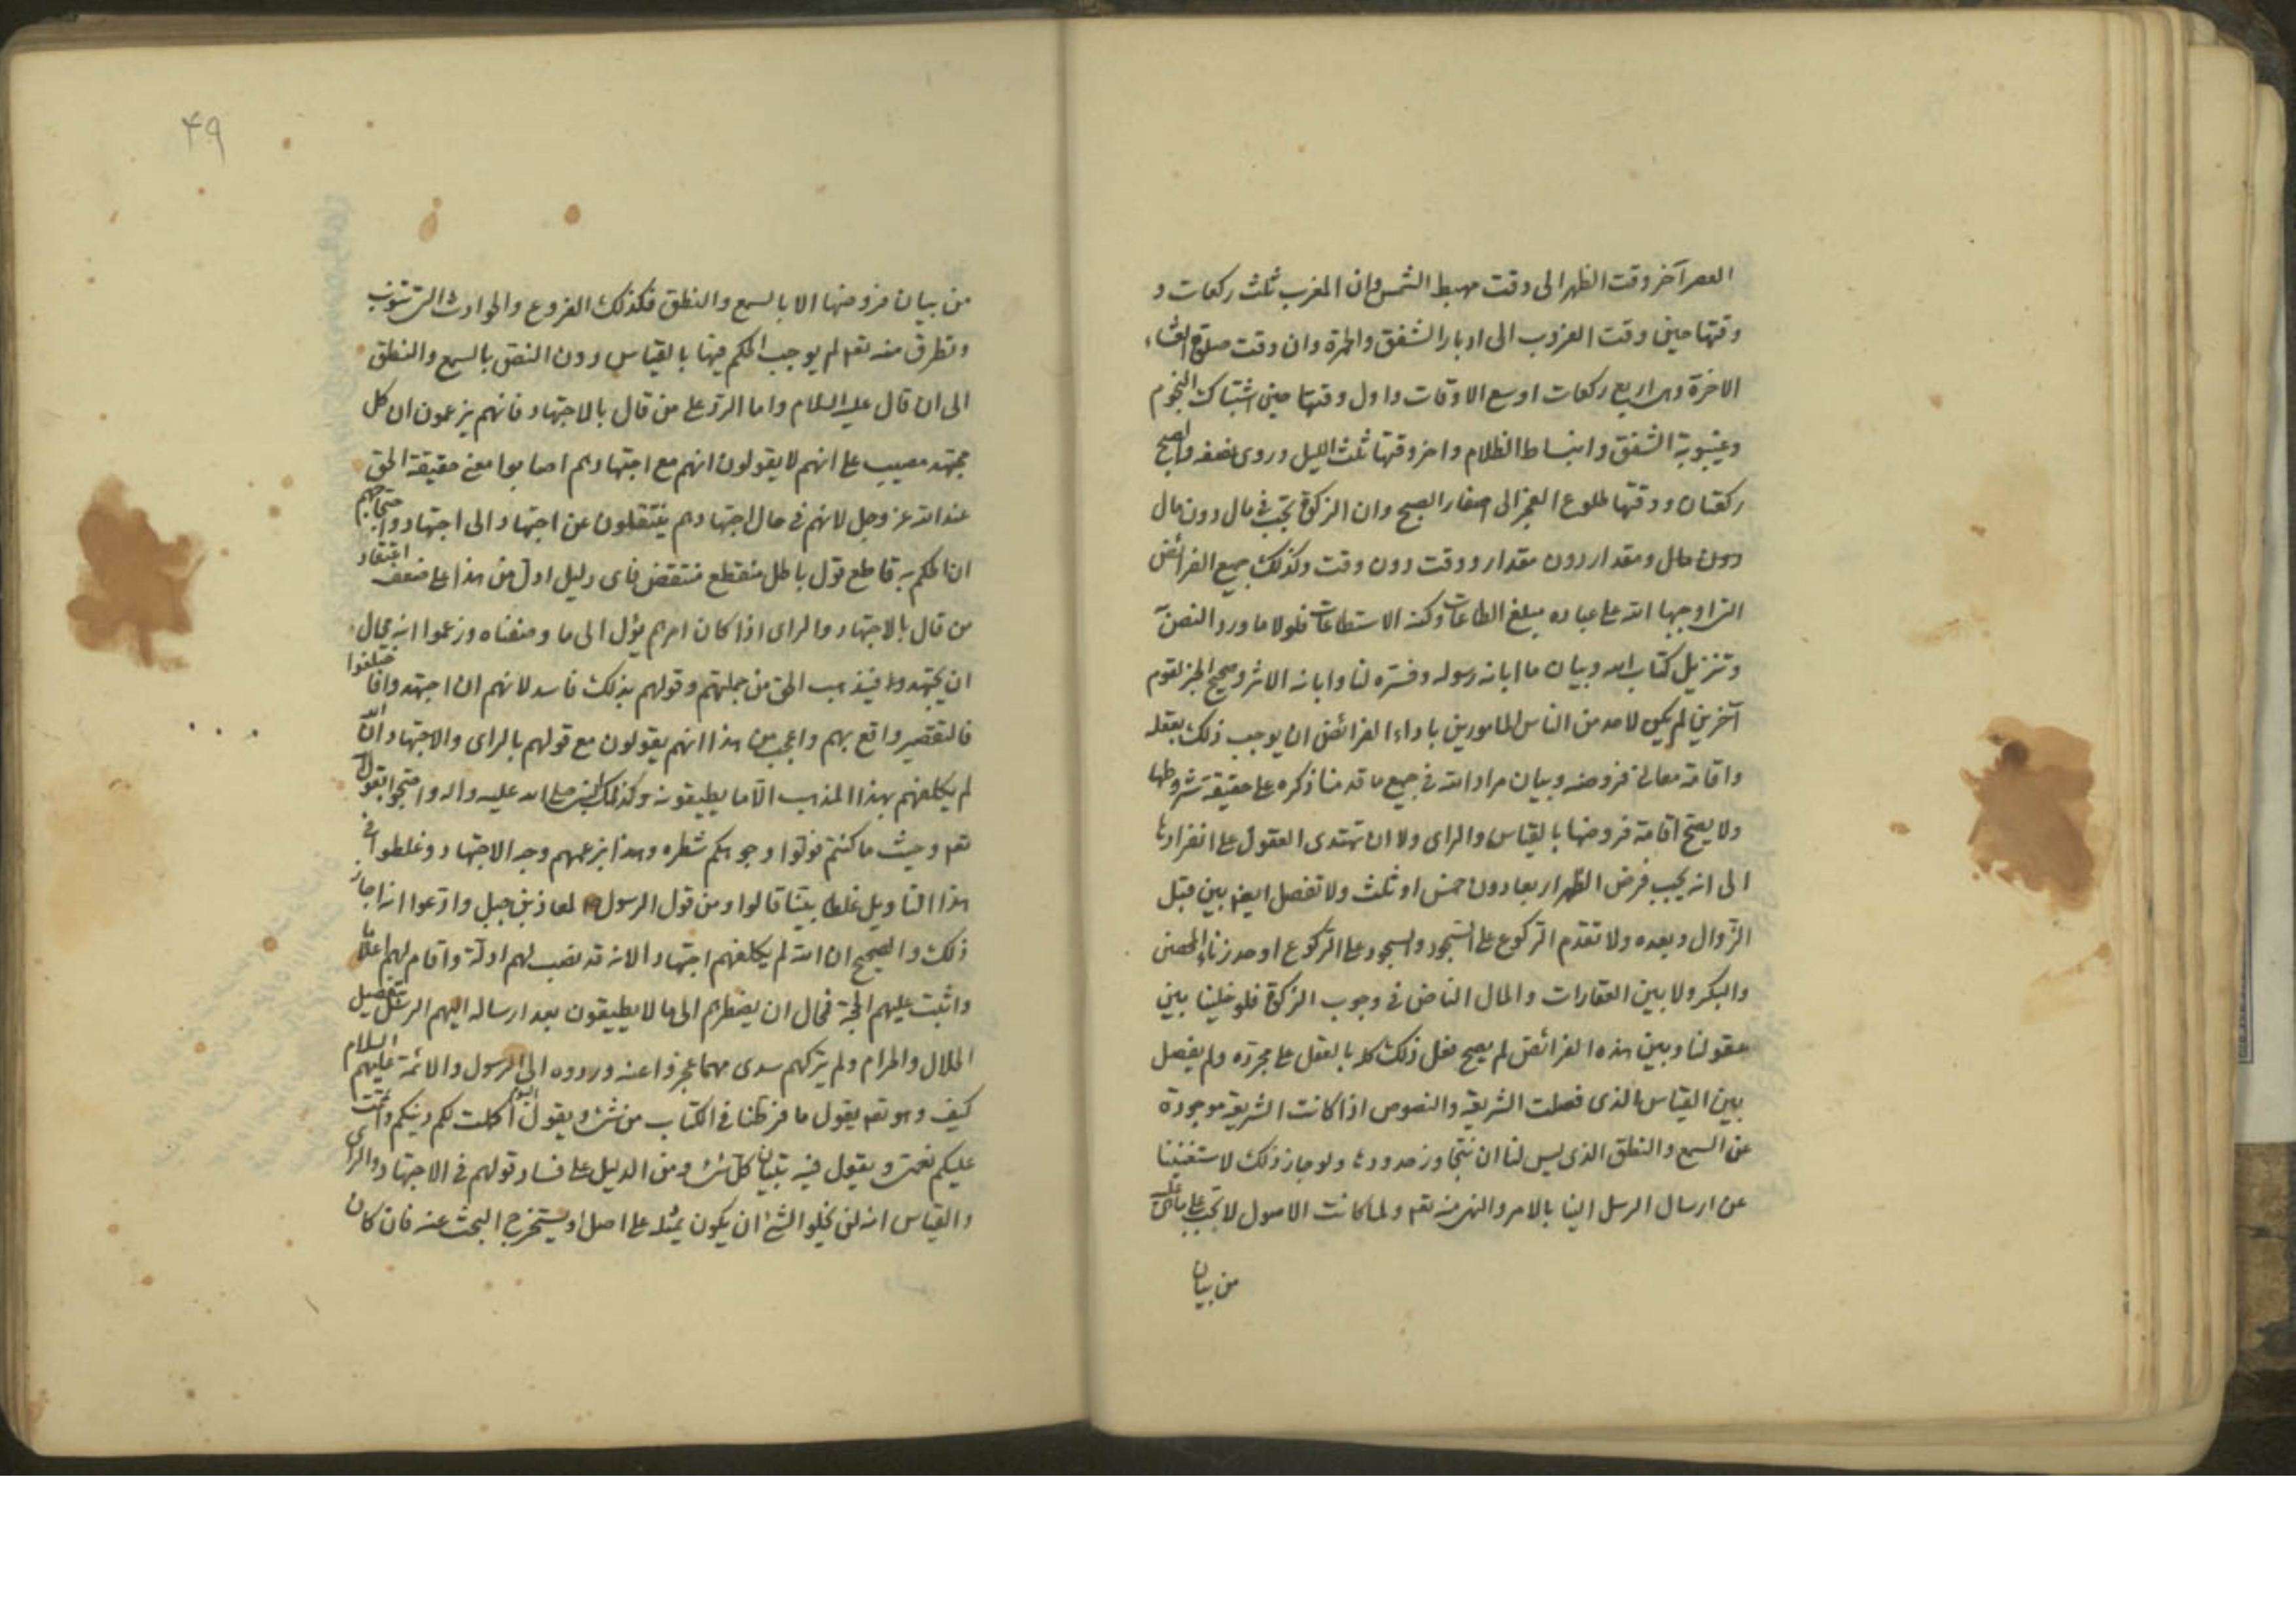 العصر آخر وقت الظهر الى وقت مهبط الشمس وان المغرب ثلث ركعات و
وقتها حين وقت الغروب الى ادبار الشفق والحمرة وان وقت صلوة العشاء
الاخرة وهى اربع ركعات اوسع الاوقات واول وقتها حين اشتباك النجوم
وغيبوبة الشفق وانبساط الظلام واخر وقتها ثلث الليل وروى نصفه والصبح
ركعتان ووقتها طلوع الفجر الى اسفار الصبح وان الزكوة تجب فى مال دون مال
ومقدار دون مقدار ووقت دون وقت وكذلك جميع الفرائض
التى اوجبها الله على عباده بمبلغ الطاعات وكنه الاستطاعات فلولا ما ورد النص به
وتنزيل كتاب الله وبيان ما ابانه رسوله وفسره لنا وابانه الاثر وصحيح الخبر لقوم
آخرين لم يكن لاحد من الناس المامورين باداء الفرائض ان يوجب ذلك بعقله
واقامة معانى فروضه وبيان مراد الله فى جميع ما قدمنا ذكره على حقيقة شروطها
ولا يصح اقامة فروضها بالقياس والراى ولا ان تهتدى العقول على انفرادها
الى انه يجب فرض الظهر اربعا دون خمس او ثلث ولا تفصل ايضا بين قبل
الزوال وبعده ولا تقدم الركوع على السجود والسجود على الركوع او حد زناء المحصن
والبكر ولا بين العقارات والمال الناض فى وجوب الزكوة فلو خلينا بين
عقولنا وبين هذه الفرائض لم يصح فعل ذلك كله بالعقل على مجرده ولم يفصل
بين القياس الذى فصلت الشريعة والنصوص اذا كانت الشريعة موجودة
عن السمع والنطق الذى ليس لنا ان نتجاوز حدودها ولو جاز ذلك لاستغنينا
عن ارسال الرسل الينا بالامر والنهى منه تعم ولما كانت الاصول لا تجب على ما هى عليه
من بيان
۴۹
من بيان فروضها الا بالسمع والنطق فكذلك الفروع والحوادث التى تنوب
وتطرق منه تعم لم يوجب الحكم فيها بالقياس دون النص بالسمع والنطق
الى ان قال عليه السلام واما الرد على من قال بالاجتهاد فانهم يزعمون ان كل
مجتهد مصيب على انهم لا يقولون انهم مع اجتهادهم اصابوا معنى حقيقة الحق
عند الله عز وجل لانهم فى حال اجتهادهم ينتقلون عن اجتهاد الى اجتهاد واحتجاجهم
ان الحكم به قاطع قول باطل منقطع منتقض فاى دليل ادل من هذا على ضعف اعتقاد
من قال بالاجتهاد والراى اذا كان امرهم يؤل الى ما وصفناه وزعموا انه محال
ان يجتهدوا فيذهب الحق من جملتهم وقولهم بذلك فاسد لانهم ان اجتهدوا فاختلفوا
فالتقصير واقع بهم واعجب من هذا انهم يقولون مع قولهم بالراى والاجتهاد ان الله
لم يكلفهم بهذا المذهب الا ما يطيقونه وكذلك النبى صلى الله عليه واله واحتجوا بقول الله
تعم وحيث ما كنتم فولوا وجوهكم شطره وهذا بزعمهم وجه الاجتهاد وغلطوا فى
هذا التاويل غلطا بينا قالوا ومن قول الرسول لمعاذ بن جبل وادعوا انه اجاز
ذلك والصحيح ان الله لم يكلفهم اجتهادا لانه قد نصب لهم ادلة واقام لهم اعلاما
واثبت عليهم الحجة فمحال ان يضطرهم الى ما لا يطيقون بعد ارساله اليهم الرسل بتفصيل
الحلال والحرام ولم يتركهم سدى مهما عجزوا عنه ردوه الى الرسول والائمة عليهم السلام
كيف وهو تعم يقول ما فرطنا فى الكتاب من شئ ويقول اليوم اكملت لكم دينكم واتممت
عليكم نعمتى ويقول فيه تبيان كل شئ ومن الدليل على فساد قولهم فى الاجتهاد والراى
والقياس انه لن يخلو الشئ ان يكون يمثله على اصل او يستخرج البحث عنه فان كان